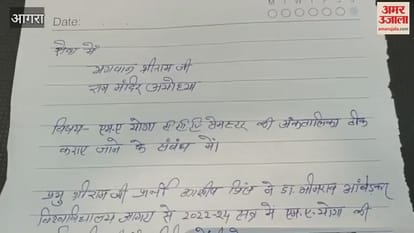 आगरा
अमर उजाला
amarujala.com
Date:
सेवा में
भगवान श्रीराम जी
राम मंदिर अयोध्या
विषय- एम.ए योगा सेमेस्टर की अंकतालिका ठीक
कराए जाने के संबंध में।
प्रभु श्रीराम जी प्रार्थी सिंह ने डा. भीमराव आंबेडकर
विश्वविद्यालय आगरा से 2022-24 सत्र में एम.ए. योगा की